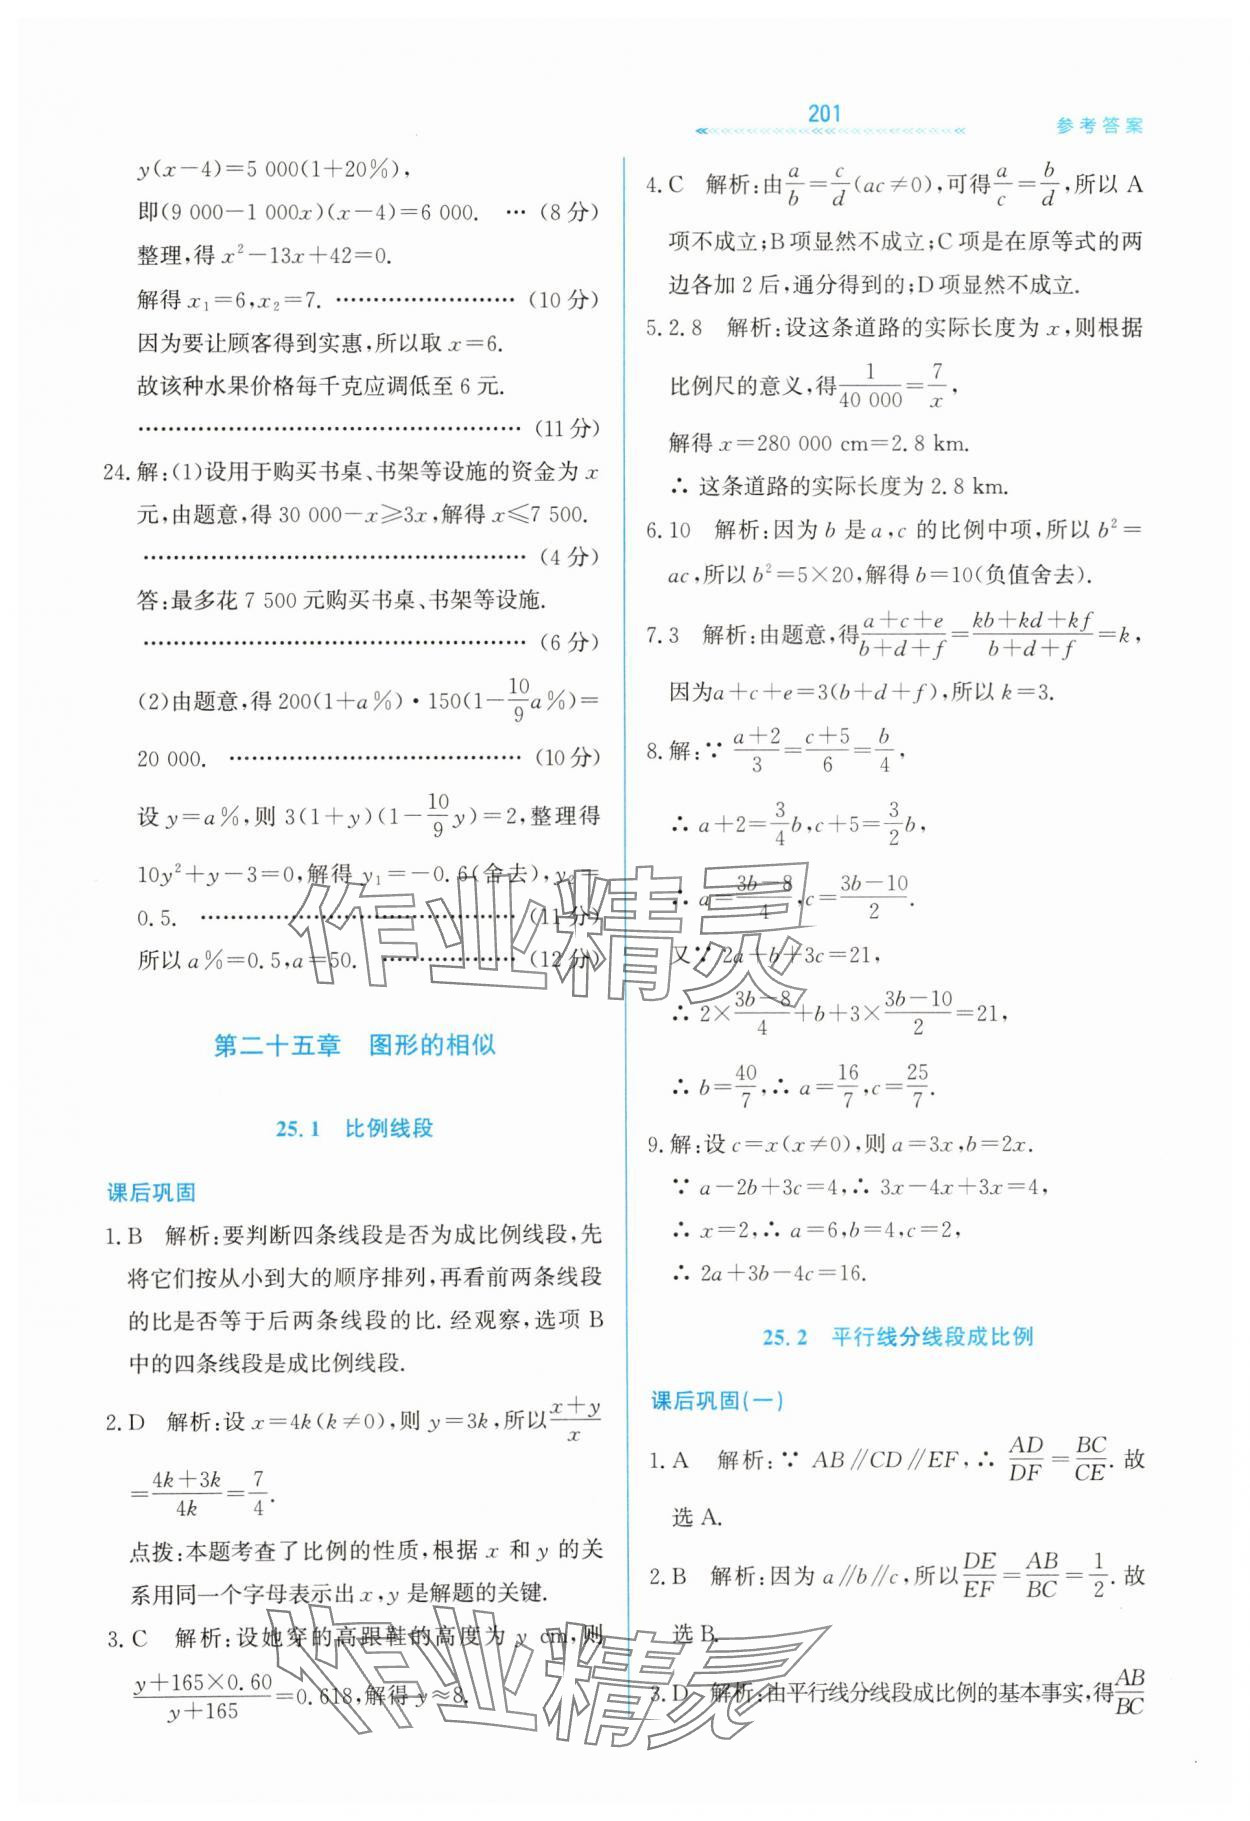 201
参考答案
y(x-4)=5 000(1+20%),
即(9 000-1 000x)(x-4)=6 000. … (8分)
整理,得 x²-13x+42=0.
解得 x₁=6,x₂=7. …………………… (10分)
因为要让顾客得到实惠,所以取 x=6.
故该种水果价格每千克应调低至 6 元.
…………………………………………… (11分)
24.解:(1)设用于购买书桌、书架等设施的资金为 x
元,由题意,得 30 000-x≥3x,解得 x≤7 500.
…………………………………………… (4分)
答:最多花 7 500 元购买书桌、书架等设施.
…………………………………………… (6分)
(2)由题意,得 200(1+a%)·150(1-10/9 a%)=
20 000. ………………………………… (10分)
设 y=a%,则 3(1+y)(1-10/9 y)=2,整理得
10y²+y-3=0,解得 y₁=-0.6(舍去),y₂=
0.5. …………………………………… (11分)
所以 a%=0.5,a=50. ……………… (12分)
第二十五章 图形的相似
25.1 比例线段
课后巩固
1.B 解析:要判断四条线段是否为成比例线段,先
将它们按从小到大的顺序排列,再看前两条线段
的比是否等于后两条线段的比.经观察,选项 B
中的四条线段是成比例线段.
2.D 解析:设 x=4k(k≠0),则 y=3k,所以(x+y)/x
=(4k+3k)/4k=7/4.
点拨:本题考查了比例的性质,根据 x 和 y 的关
系用同一个字母表示出 x,y 是解题的关键.
3.C 解析:设她穿的高跟鞋的高度为 y cm,则
(y+165×0.60)/(y+165)=0.618,解得 y≈8.
4.C 解析:由a/b=c/d(ac≠0),可得a/c=b/d,所以 A
项不成立;B项显然不成立;C项是在原等式的两
边各加 2 后,通分得到的;D项显然不成立.
5.2.8 解析:设这条道路的实际长度为 x,则根据
比例尺的意义,得1/40 000=7/x,
解得 x=280 000 cm=2.8 km.
∴ 这条道路的实际长度为 2.8 km.
6.10 解析:因为 b 是 a,c 的比例中项,所以 b²=
ac,所以 b²=5×20,解得 b=10(负值舍去).
7.3 解析:由题意,得(a+c+e)/(b+d+f)=(kb+kd+kf)/(b+d+f)=k,
因为a+c+e=3(b+d+f),所以 k=3.
8.解:∵ (a+2)/3=(c+5)/6=b/4,
∴ a+2=3/4 b,c+5=3/2 b,
∴ a=(3b-8)/4,c=(3b-10)/2.
又∵ 2a+b+3c=21,
∴ 2×(3b-8)/4+b+3×(3b-10)/2=21,
∴ b=40/7,∴ a=16/7,c=25/7.
9.解:设 c=x(x≠0),则 a=3x,b=2x.
∵ a-2b+3c=4,∴ 3x-4x+3x=4,
∴ x=2,∴ a=6,b=4,c=2,
∴ 2a+3b-4c=16.
25.2 平行线分线段成比例
课后巩固(一)
1.A 解析:∵ AB∥CD∥EF,∴ AD/DF=BC/CE.故
选 A.
2.B 解析:因为 a∥b∥c,所以DE/EF=AB/BC=1/2.故
选 B.
3.D 解析:由平行线分线段成比例的基本事实,得AB/BC
作业精灵
作业精灵